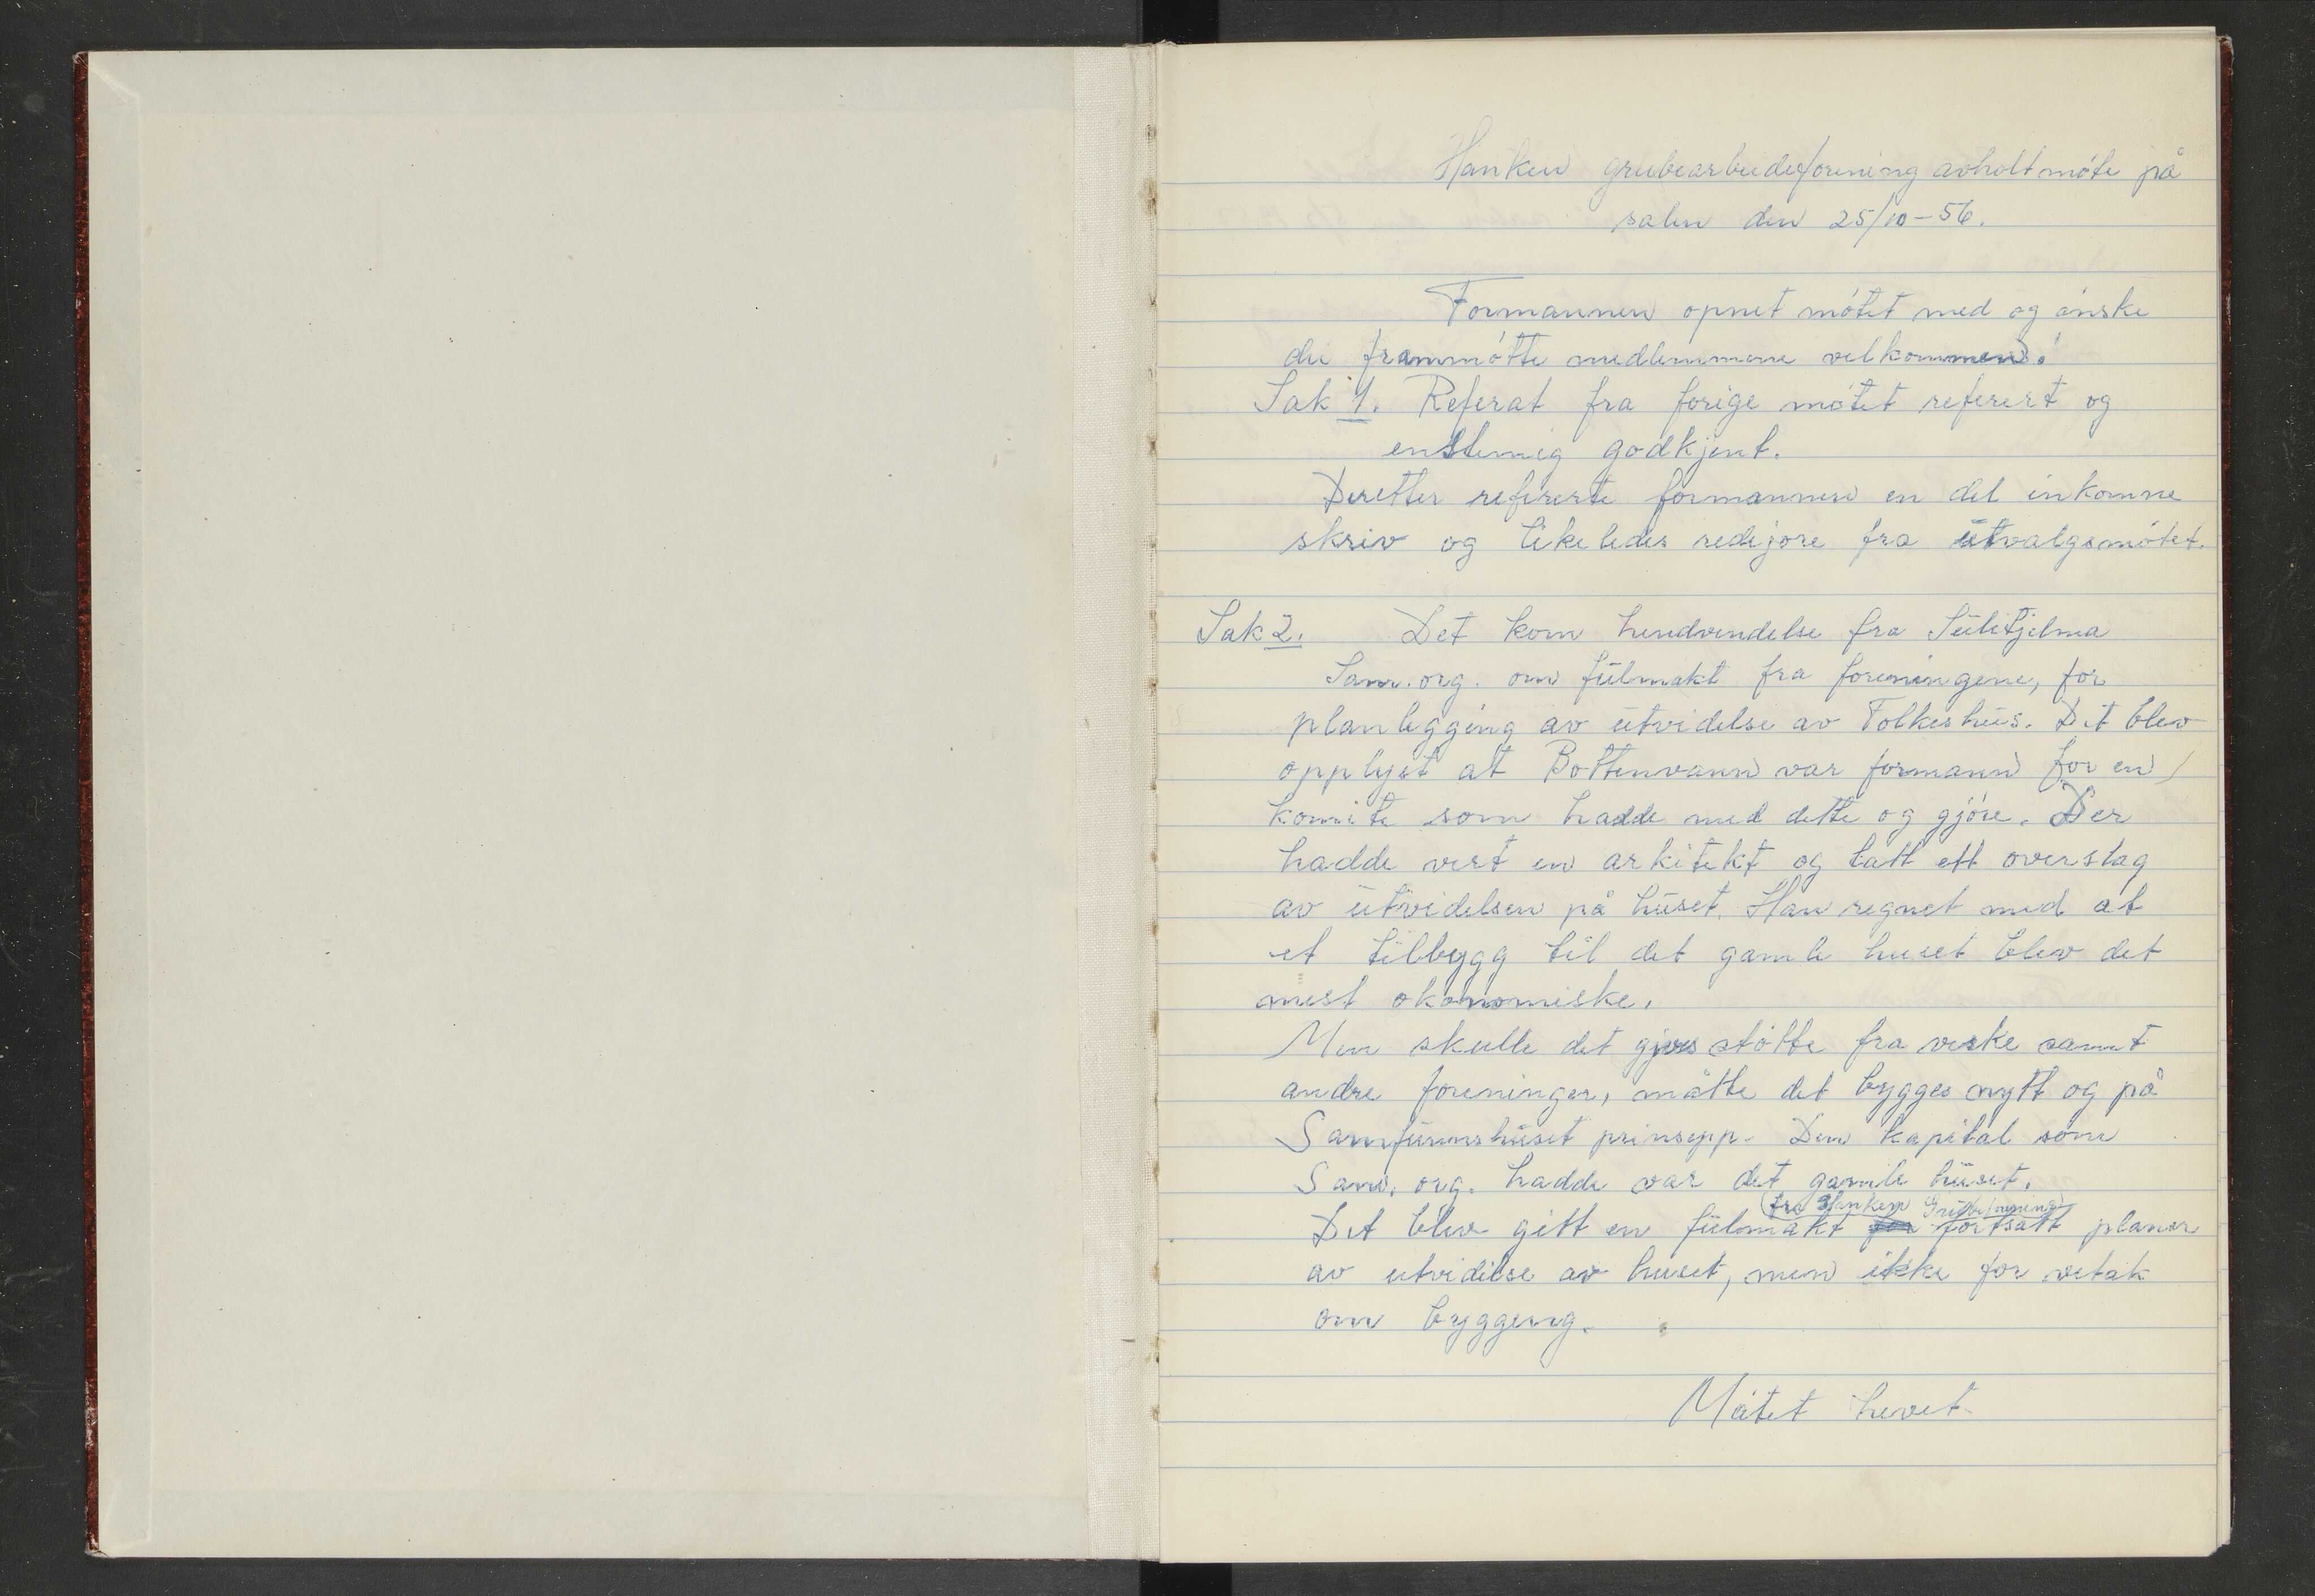 Hanken grubearbeiderforening avholt møte på
salen den 25/10-56.
Formannen opnet møtet med og ønske
de frammøtte medlemmene velkommen.
Sak 1. Referat fra forige møtet referert og
enstemig godkjent.
Deretter refererte formannen en del inkomne
skriv og likeledes redejore fra utvalgsmøtet.
Sak 2. Det kom hendvendelse fra Sulitjelma
Sam. org. om fulmakt fra foreningene, for
planlegging av utvidelse av Folkeshus. Det blev
opplyst at Bottenvann var formann for en
komite som hadde med dette og gjøre. Der
hadde vert en arkitekt og tatt ett overslag
av utvidelsen på huset. Han regnet med at
et tilbygg til det gamle huset blev det
mest økonomiske.
Men skulle det gjves støtte fra verke samt
andre foreninger, måtte det bygges nytt og på
Samfunnshuset prinsepp. Den kapital som
Sam. org. hadde var det gamle huset.
(fra Hanken Grubeforening)
Det blev gitt en fulmakt for fortsatt planer
av utvidelse av huset, men ikke for vetak
om bygging.
Møtet hevet.